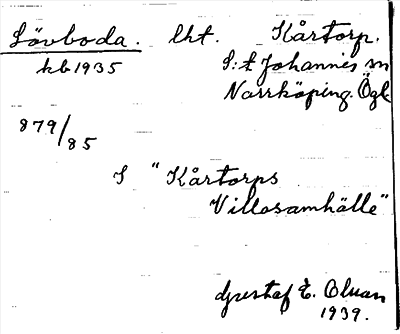 Lövboda. lht. Kårtorp.
kb 1935 S:t Johannis sn
Norrköping. Ögl
879/85
I "Kårtorps
Villasamhälle"
Gustaf E. Olman
1939.